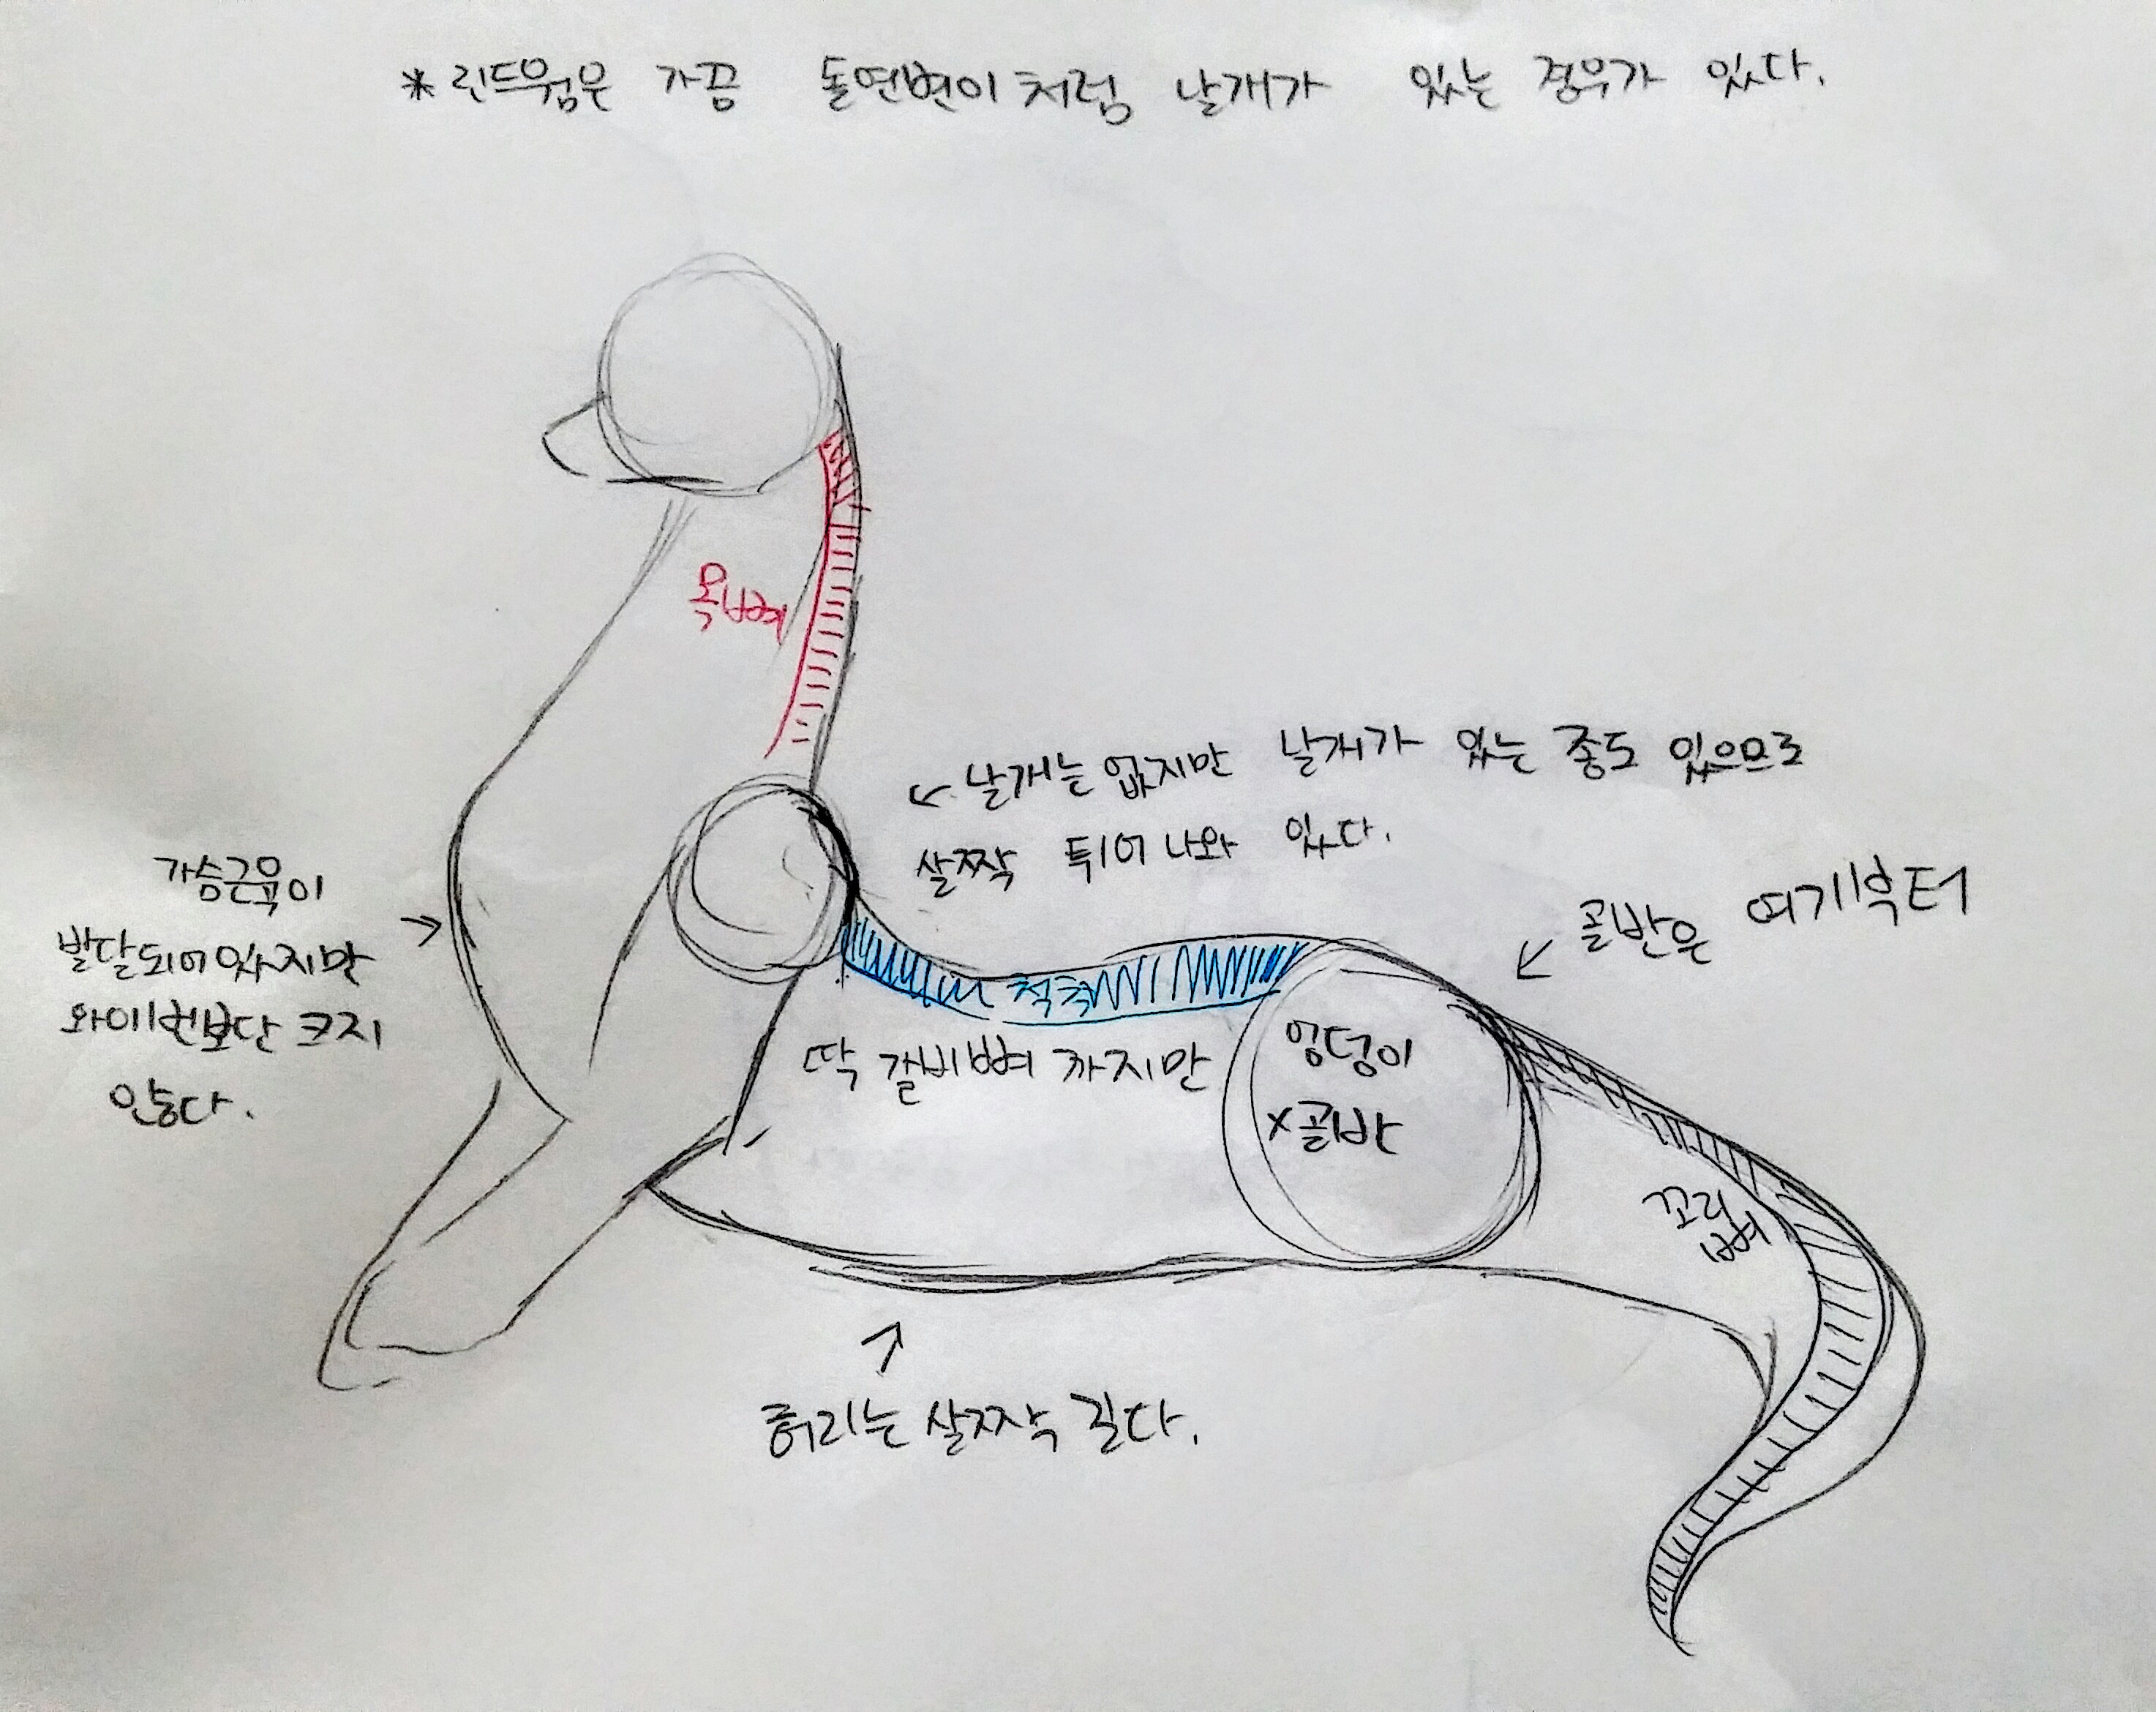 *린드웜은 가끔 돌연변이처럼 날개가 있는 경우가 있다.
목뼈
← 날개는 없지만 날개가 있는 종도 있으므로
살짝 튀어나와 있다.
가슴근육이
발달되어있지만 →
와이번보단 크지
않는다.
↙ 골반은 여기부터
척추
딱 갈비뼈 까지만
엉덩이
x골반
꼬리
뼈
↗
허리는 살짝 길다.